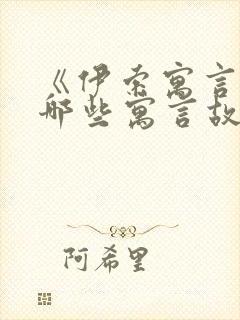 《伊索寓言
哪些寓言故
阿希里